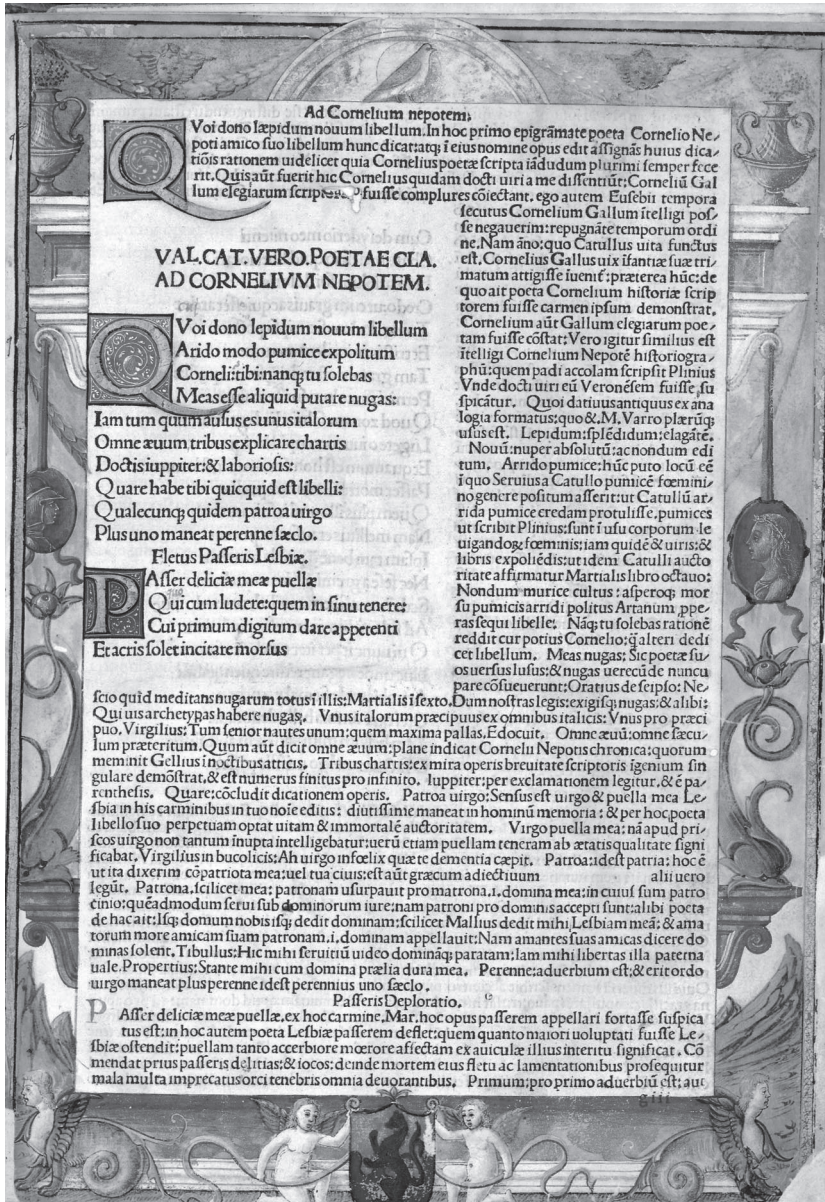 Ad Cornelium nepotem.
QVoi dono læpidum nouum libellum. In hoc primo epigrāmate poeta Cornelio Ne-
poti amico suo libellum hunc dicat: atq; ī eius nomine opus edit assignās huius dica-
tiōis rationem uidelicet quia Cornelius poetæ scripta iādudum plurimi semper fece
rit. Quis aūt fuerit hic Cornelius quidam docti uiri a me dissentiūt: Corneliū Gal
lum elegiarum scriptorē fuisse complures cōiectant. ego autem Eusebii tempora
secutus Cornelium Gallum ītelligi pos-
se negauerim: repugnāte temporum ordi
ne. Nam āno: quo Catullus uita functus
est. Cornelius Gallus uix īfantiæ suæ tri-
matum attigisse iuenit̄: præterea hūc: de
quo ait poeta Cornelium historiæ scrip
torem fuisse carmen ipsum demonstrat.
Cornelium aūt Gallum elegiarum poe-
tam fuisse cōstat: Vero igitur similius est
ītelligi Cornelium Nepotē historiogra-
phū: quem padi accolam scripsit Plinius
Vnde docti uiri eū Veronēsem fuisse, su
spicātur. Quoi datiuus antiquus ex ana
logia formatus: quo &. M. Varro plærūq;
usus est. Lepidum: splēdidum: elagāte.
Nouū: nuper absolutū: ac nondum edi
tum. Arrido pumice: hūc puto locū eē
ī quo Seruius a Catullo pumicē fœmini-
no genere positum asserit: ut Catullū ar-
rida pumice credam protulisse. pumices
ut scribit Plinius: sunt ī usu corporum le
uigandoꝝ fœminis: iam quidē & uiris: &
libris expoliēdis: ut idem Catulli aucto
ritate affirmatur Martialis libro octauo:
Nondum murice cultus: asperoq; mor
su pumicis arridi politus Artanum, ppe-
ras sequi libelle. Nāq; tu solebas rationē
reddit cur potius Cornelio: q̄ alteri dedi
cet libellum. Meas nugas: Sic poetæ su-
os uersus lusus: & nugas uerecūde nuncu
pare cōsueuerunt: Oratius de seipso: Ne-
VAL. CAT. VERO. POETAE CLA.
AD CORNELIVM NEPOTEM.
QVoi dono lepidum nouum libellum
Arido modo pumice expolitum
Corneli: tibi: nanq; tu solebas
Meas esse aliquid putare nugas:
Iam tum quum ausus es unus italorum
Omne æuum tribus explicare chartis
Doctis iuppiter: & laboriosis:
Quare habe tibi quicquid est libelli:
Qualecunq; quidem patroa uirgo
Plus uno maneat perenne sæclo.
Fletus Passeris Lesbiæ.
PAsser deliciæ meæ puellæ
Qui cum ludere: quem in sinu tenere:
Cui primum digitum dare appetenti
Et acris solet incitare morsus
scio quid meditans nugarum totus ī illis: Martialis ī sexto. Dum nostras legis: exigisq; nugas: & alibi:
Qui uis archetypas habere nugas. Vnus italorum præcipuus ex omnibus italicis: Vnus pro præci
puo. Virgilius: Tum senior nautes unum: quem maxima pallas. Edocuit. Omne æuū: omne sæcu-
lum præteritum. Quum aūt dicit omne æuum: plane indicat Cornelii Nepotis chronica: quorum
meminit Gellius ī noctibus atticis. Tribus chartis: ex mira operis breuitate scriptoris īgenium sin
gulare demōstrat. & est numerus finitus pro infinito. Iuppiter: per exclamationem legitur. & ē pa-
renthesis. Quare: cōcludit dicationem operis. Patroa uirgo: Sensus est uirgo & puella mea Le-
sbia in his carminibus in tuo noīe editis: diutissime maneat in hominū memoria: & per hoc, poeta
libello suo perpetuam optat uitam & immortalē auctoritatem. Virgo puella mea: nā apud pri-
scos uirgo non tantum inupta intelligebatur: uerū etiam puellam teneram ab ætatis qualitate signi
ficabat. Virgilius in bucolicis: Ah uirgo infœlix quæ te dementia cæpit. Patroa: idest patria: hoc ē
ut ita dixerim cōpatriota mea: uel tua ciuis: est aūt græcum adiectiuum alii uero
legūt. Patrona, scilicet mea: patronam usurpauit pro matrona. i. domina mea: in cuius sum patro
cinio: quēadmodum serui sub dominorum iure: nam patroni pro dominis accepti sunt: alibi poeta
de hac ait: Isq; domum nobis isq; dedit dominam: scilicet Mallius dedit mihi Lesbiam meā: & ama
torum more amicam suam patronam. i. dominam appellauit: Nam amantes suas amicas dicere do
minas solent. Tibullus: Hic mihi seruitiū uideo domināq; paratam: Iam mihi libertas illa paterna
uale. Propertius: Stante mihi cum domina prælia dura mea. Perenne: aduerbium est: & erit ordo
uirgo maneat plus perenne idest perennius uno sæclo.
Passeris Deploratio.
PAsser deliciæ meæ puellæ, ex hoc carmine. Mar. hoc opus passerem appellari fortasse suspica
tus est: in hoc autem poeta Lesbiæ passerem deflet: quem quanto maiori uoluptati fuisse Le-
sbiæ ostendit: puellam tanto accerbiore mœrore affectam ex auiculæ illius interitu significat. Cō
mendat prius passeris delitias: & iocos: deinde mortem eius fletu ac lamentationibus prosequitur
mala multa imprecatus orci tenebris omnia deuorantibus. Primum: pro primo aduerbiū est: aut
g iii